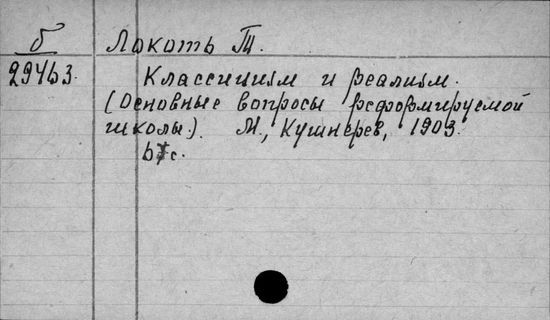 б Локоть Т.
29463. Классицизм и реализм.
(Основные вопросы реформируемой
школы.). М., Кушнерев, 1903.
с.